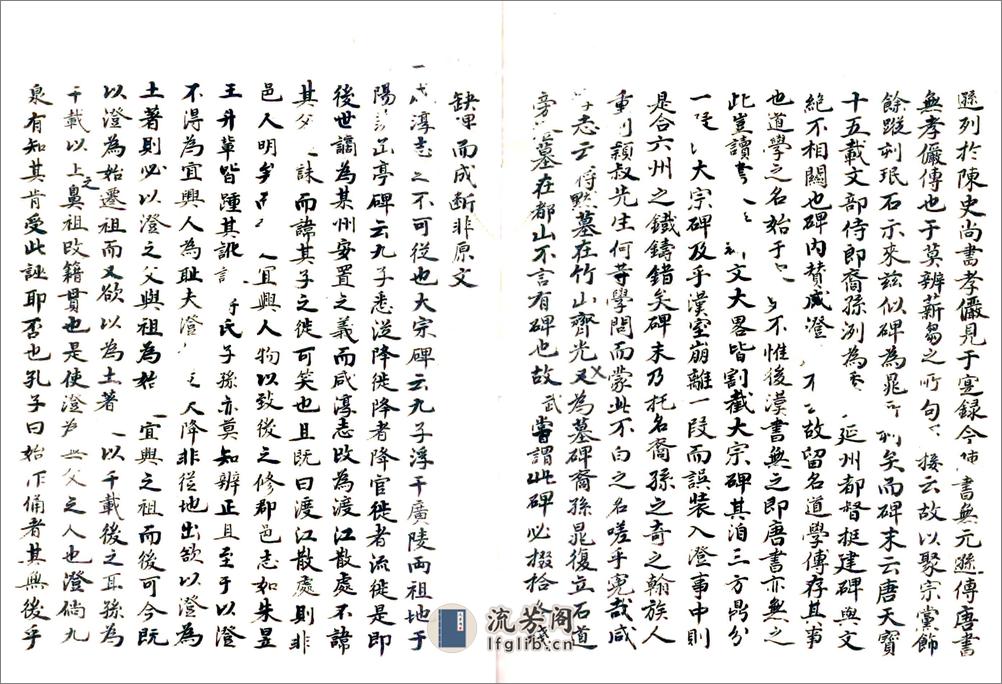 遜列於陳史尚書孝儼見于寔錄今 書無元遜傳唐書
無孝儼傳也于莫辨薪芻之所句 接云故以聚宗黨飾
餘蹤刻珉石示來茲似碑為晁 刺矣而碑末云唐天寶
十五載文部侍郎裔孫洌為 延州都督挺建碑與文
絕不相關也碑內贊咸澄 故留名道學傳存其事
也道學之名始于 不惟後漢書無之即唐書亦無之
此豈讀書 文大畧皆割截大宗碑其洎三方鼎分
一 大宗碑及乎漢室崩離一段而誤裝入澄事中則
是合六州之鐵鑄錯矣碑末乃托名裔孫之奇之翰族人
重刊穎叔先生何等學問而蒙此不白之名嗟乎寃哉咸
志云 默墓在竹山齊光乂為墓碑裔孫晁復立石道
旁 墓在都山不言有碑也故武嘗謂此碑必掇拾殘
缺碑而成斷非原文
一咸淳志之不可從也大宗碑云九子浮于廣陵兩祖地于
陽 亭碑云九子悉從降徙降者降官徙者流徙是即
後世謫為某州安置之義而咸淳志改為渡江散處不諱
其父 誅而諱其子之徙可笑也且既曰渡江散處則非
邑人明矣 宜興人物以致後之修郡邑志如朱昱
王升輩皆踵其訛 氏子孫亦莫知辨正且至于以澄
不得為宜興人為耻夫澄 人降非從地出欲以澄為
土著則必以澄之父與祖為始 宜興之祖而後可今既
以澄為始遷祖而又欲以為土著 以千載後之耳孫為
千載以上之鼻祖改籍貫也是使澄為 父之人也澄倘九
泉有知其肯受此誣耶否也孔子曰始作俑者其無後乎
流芳阁
lfglib.cn